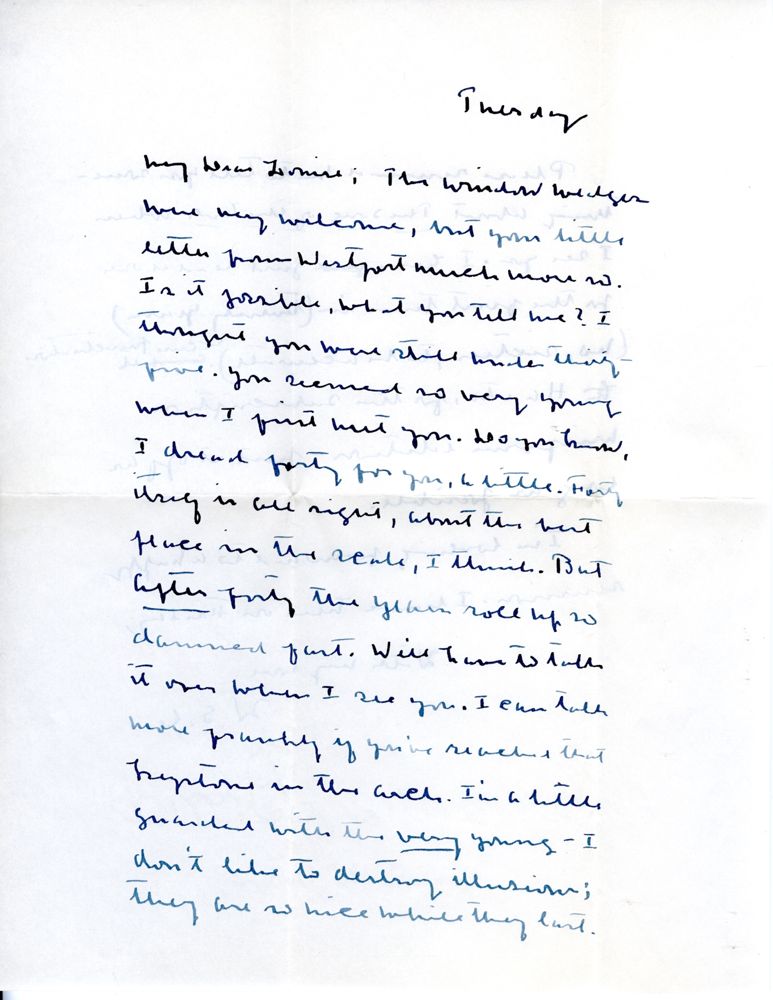 Tuesday
My Dear Louise; The window wedges
were very welcome, but your little
letter from Westport much more so.
Is it possible, what you tell me? I
thought you were still under thirty-
five. You seemed so very young
when I first met you. Do you know,
I dread forty for you, a little. Forty
itself is all right, about the best
place in the scale, I think. But
after forty the years roll up so
damned fast. Will have to talk
it over when I see you. I can talk
more frankly if you've reached that
keystone in the arch. I'm a little
guarded with the very young - I
don't like to destroy illusions;
they are so nice while they last.